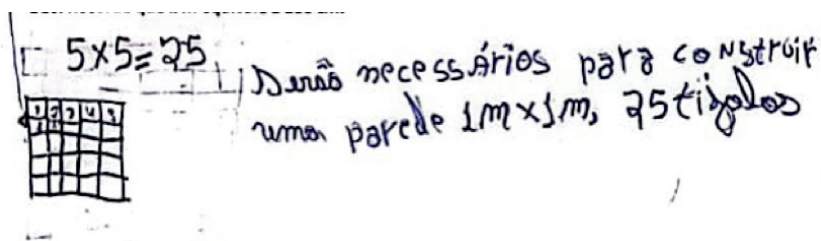 5×5=25
Serão necessÁrios para coNstruir
uma parede 1m×1m, 25 tijolos
1 2 3 4 5
1